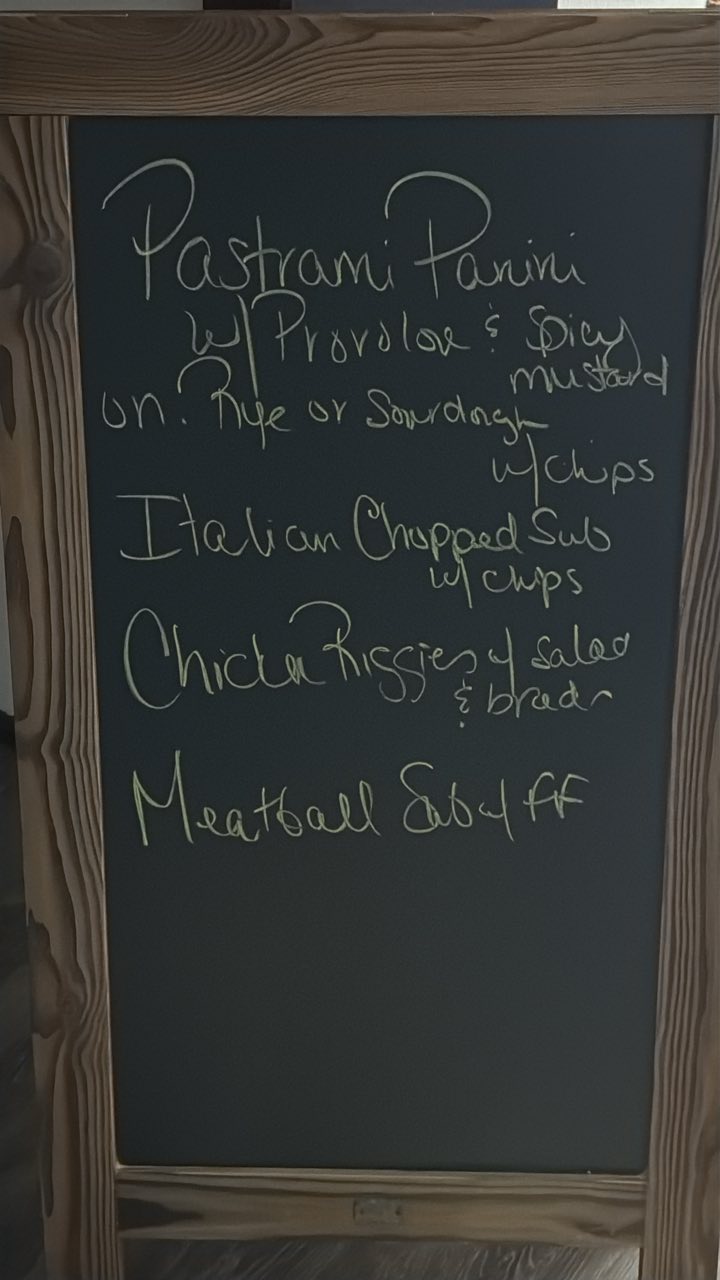 Pastrami Panini
w/ Provolone & Spicy
mustard
on. Rye or Sourdough
w/ chips
Italian Chopped Sub
w/ chips
Chicken Riggies w/ Salad
& bread
Meatball Sub w/ FF